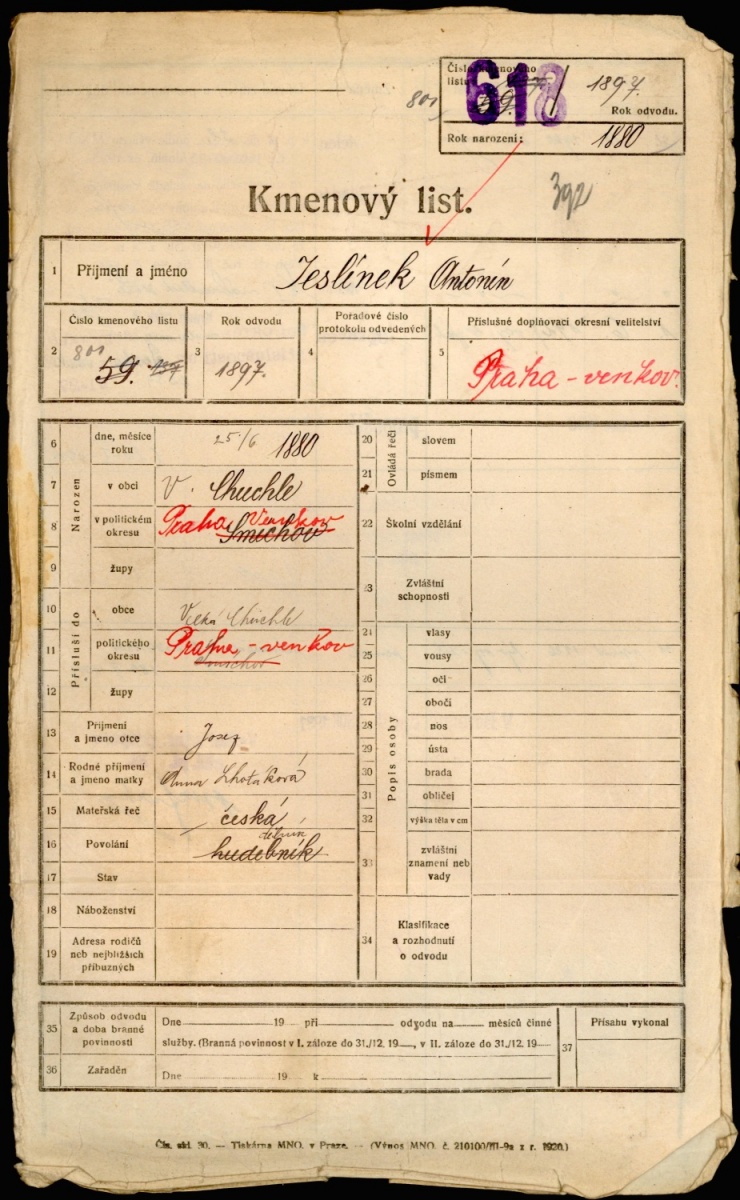 Číslo kmenového
listu
618
59.
/
1897.
801
Rok odvodu.
Rok narození:
1880
392
Kmenový list.
1 Příjmení a jméno Jeslínek Antonín
Číslo kmenového listu
2 801 59. 187
3 Rok odvodu
1897.
4 Pořadové číslo
protokolu odvedených
5 Příslušné doplňovací okresní velitelství
Praha-venkov.
Narozen
6 dne, měsíce
roku 25./6 1880
7 v obci V. Chuchle
8 v politickém
okresu Praha Venkov
Smíchov
9 župy
Přísluší do
10 obce Velká Chuchle
11 politického
okresu Praha-venkov
Smíchov
12 župy
13 Příjmení
a jmeno otce Josef
14 Rodné příjmení
a jmeno matky Anna Lhotáková
15 Mateřská řeč česká
16 Povolání dělník
hudebník
17 Stav
18 Náboženství
19 Adresa rodičů
neb nejbližších
příbuzných
Ovládá řeči
20 slovem
21 písmem
22 Školní vzdělání
23 Zvláštní
schopnosti
Popis osoby
24 vlasy
25 vousy
26 oči
27 obočí
28 nos
29 ústa
30 brada
31 obličej
32 výška těla v cm
33 zvláštní
znamení neb
vady
34 Klasifikace
a rozhodnutí
o odvodu
35 Způsob odvodu
a doba branné
povinnosti
Dne 19 při odvodu na měsíců činné
služby. (Branná povinnost v I. záloze do 31./12. 19—, v II. záloze do 31./12. 19—
36 Zařaděn
Dne 19 k
37 Přísahu vykonal
Čís. skl. 30. — Tiskárna MNO. v Praze. — (Výnos MNO. č. 210100/III-9a z r. 1920.)